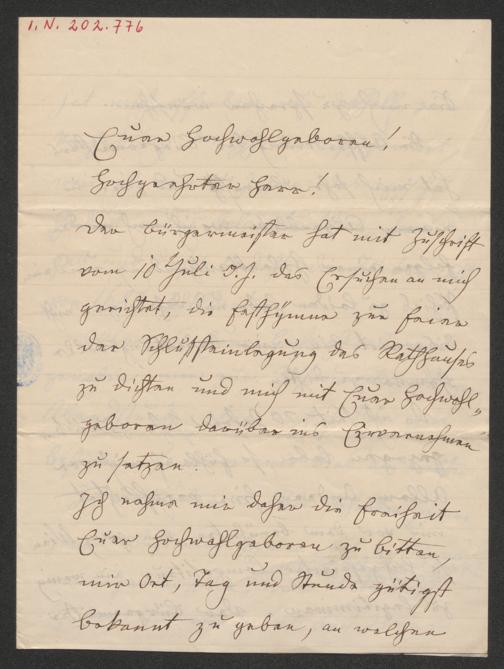 I. N. 202.776
Euer Hochwohlgeboren!
Hochgeehrter Herr!
Der Bürgermeister hat mit Zuschrift
vom 10 Juli d. J. das Ersuchen an mich
gerichtet, die Festhymne zur Feier
der Schlußsteinlegung des Rathhauses
zu dichten und mich mit Euer Hochwohl„
geboren darüber ins Einvernehmen
zu setzen
Ich nehme mir daher die Freiheit
Euer Hochwohlgeboren zu bitten,
mir Ort, Tag und Stunde gütigst
bekannt zu geben, an welchen